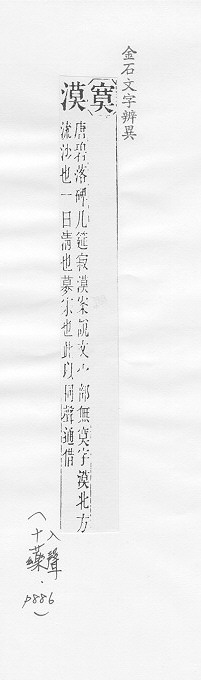 金石文字辨異
寞
漠
唐碧落碑几筵寂漠案說文宀部無寞字漠北方
流沙也一曰清也 也此以同聲通借
（入聲
十藥．p886）